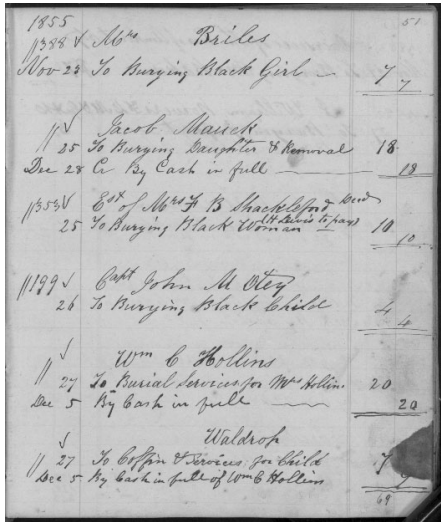 1855 51
1388 √ Mrs Briles
Nov 23 To Burying Black Girl 7 7
√ Jacob Mauck
25 To Burying Daughter & Removal 18
Dec 28 Cr By Cash in full 18
353 √ Est of Mrs F B Shackleford Decd
25 To Burying Black Woman (H Lewis to pay) 10 10
199 √ Capt John M Otey
26 To Burying Black Child 4 4
√ Wm C Hollins
27 To Burial Services for Mrs Hollins 20
Dec 5 By Cash in full 20
√ Waldrop
27 To Coffin & Services for Child 7
Dec 5 By Cash in full of Wm C Hollins 7
69